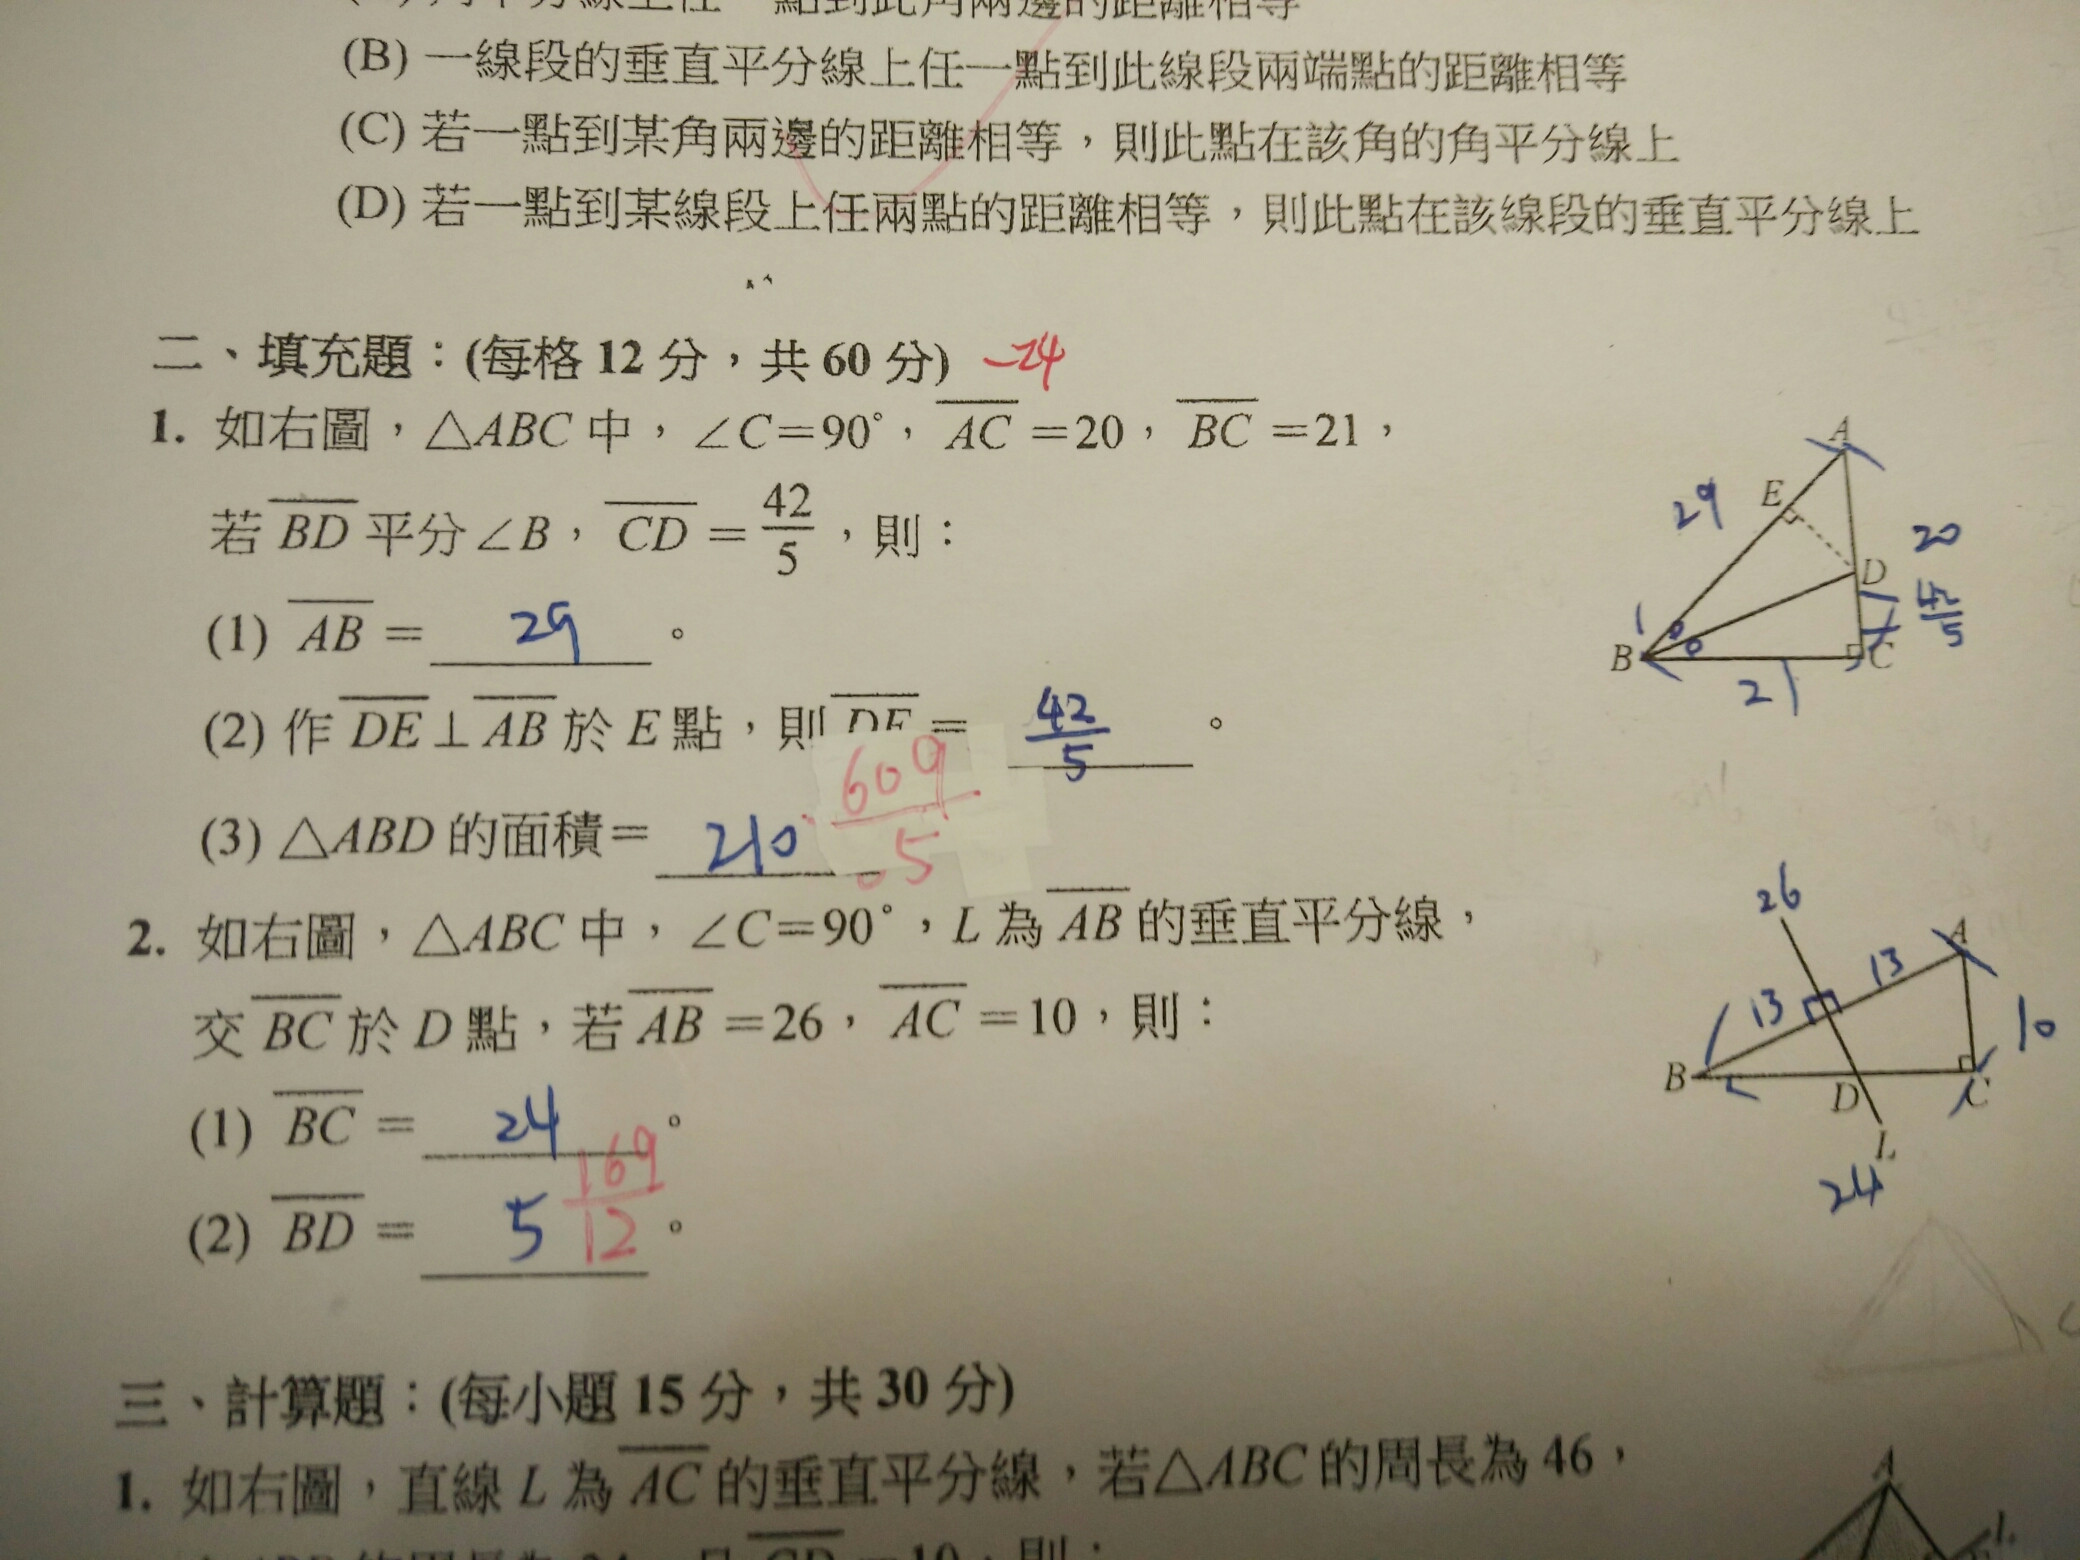 點到此角兩邊的距離相等
(B) 一線段的垂直平分線上任一點到此線段兩端點的距離相等
(C) 若一點到某角兩邊的距離相等，則此點在該角的角平分線上
(D) 若一點到某線段上任兩點的距離相等，則此點在該線段的垂直平分線上
二、填充題：(每格 12 分，共 60 分) -24
1. 如右圖，△ABC 中，∠C=90°，AC=20，BC=21，
若 BD 平分∠B，CD=42/5，則：
(1) AB= 29 。
(2) 作 DE⊥AB 於 E 點，則 DE= 42/5 。
(3) △ABD 的面積= 210 609/5 。
A
E
29
20
D
42/5
B
C
21
2. 如右圖，△ABC 中，∠C=90°，L 為 AB 的垂直平分線，
交 BC 於 D 點，若 AB=26，AC=10，則：
(1) BC= 24 。
(2) BD= 5 169/12 。
26
A
13
13
10
B
D
C
L
24
三、計算題：(每小題 15 分，共 30 分)
1. 如右圖，直線 L 為 AC 的垂直平分線，若△ABC 的周長為 46，
A
L
CD=10，則：